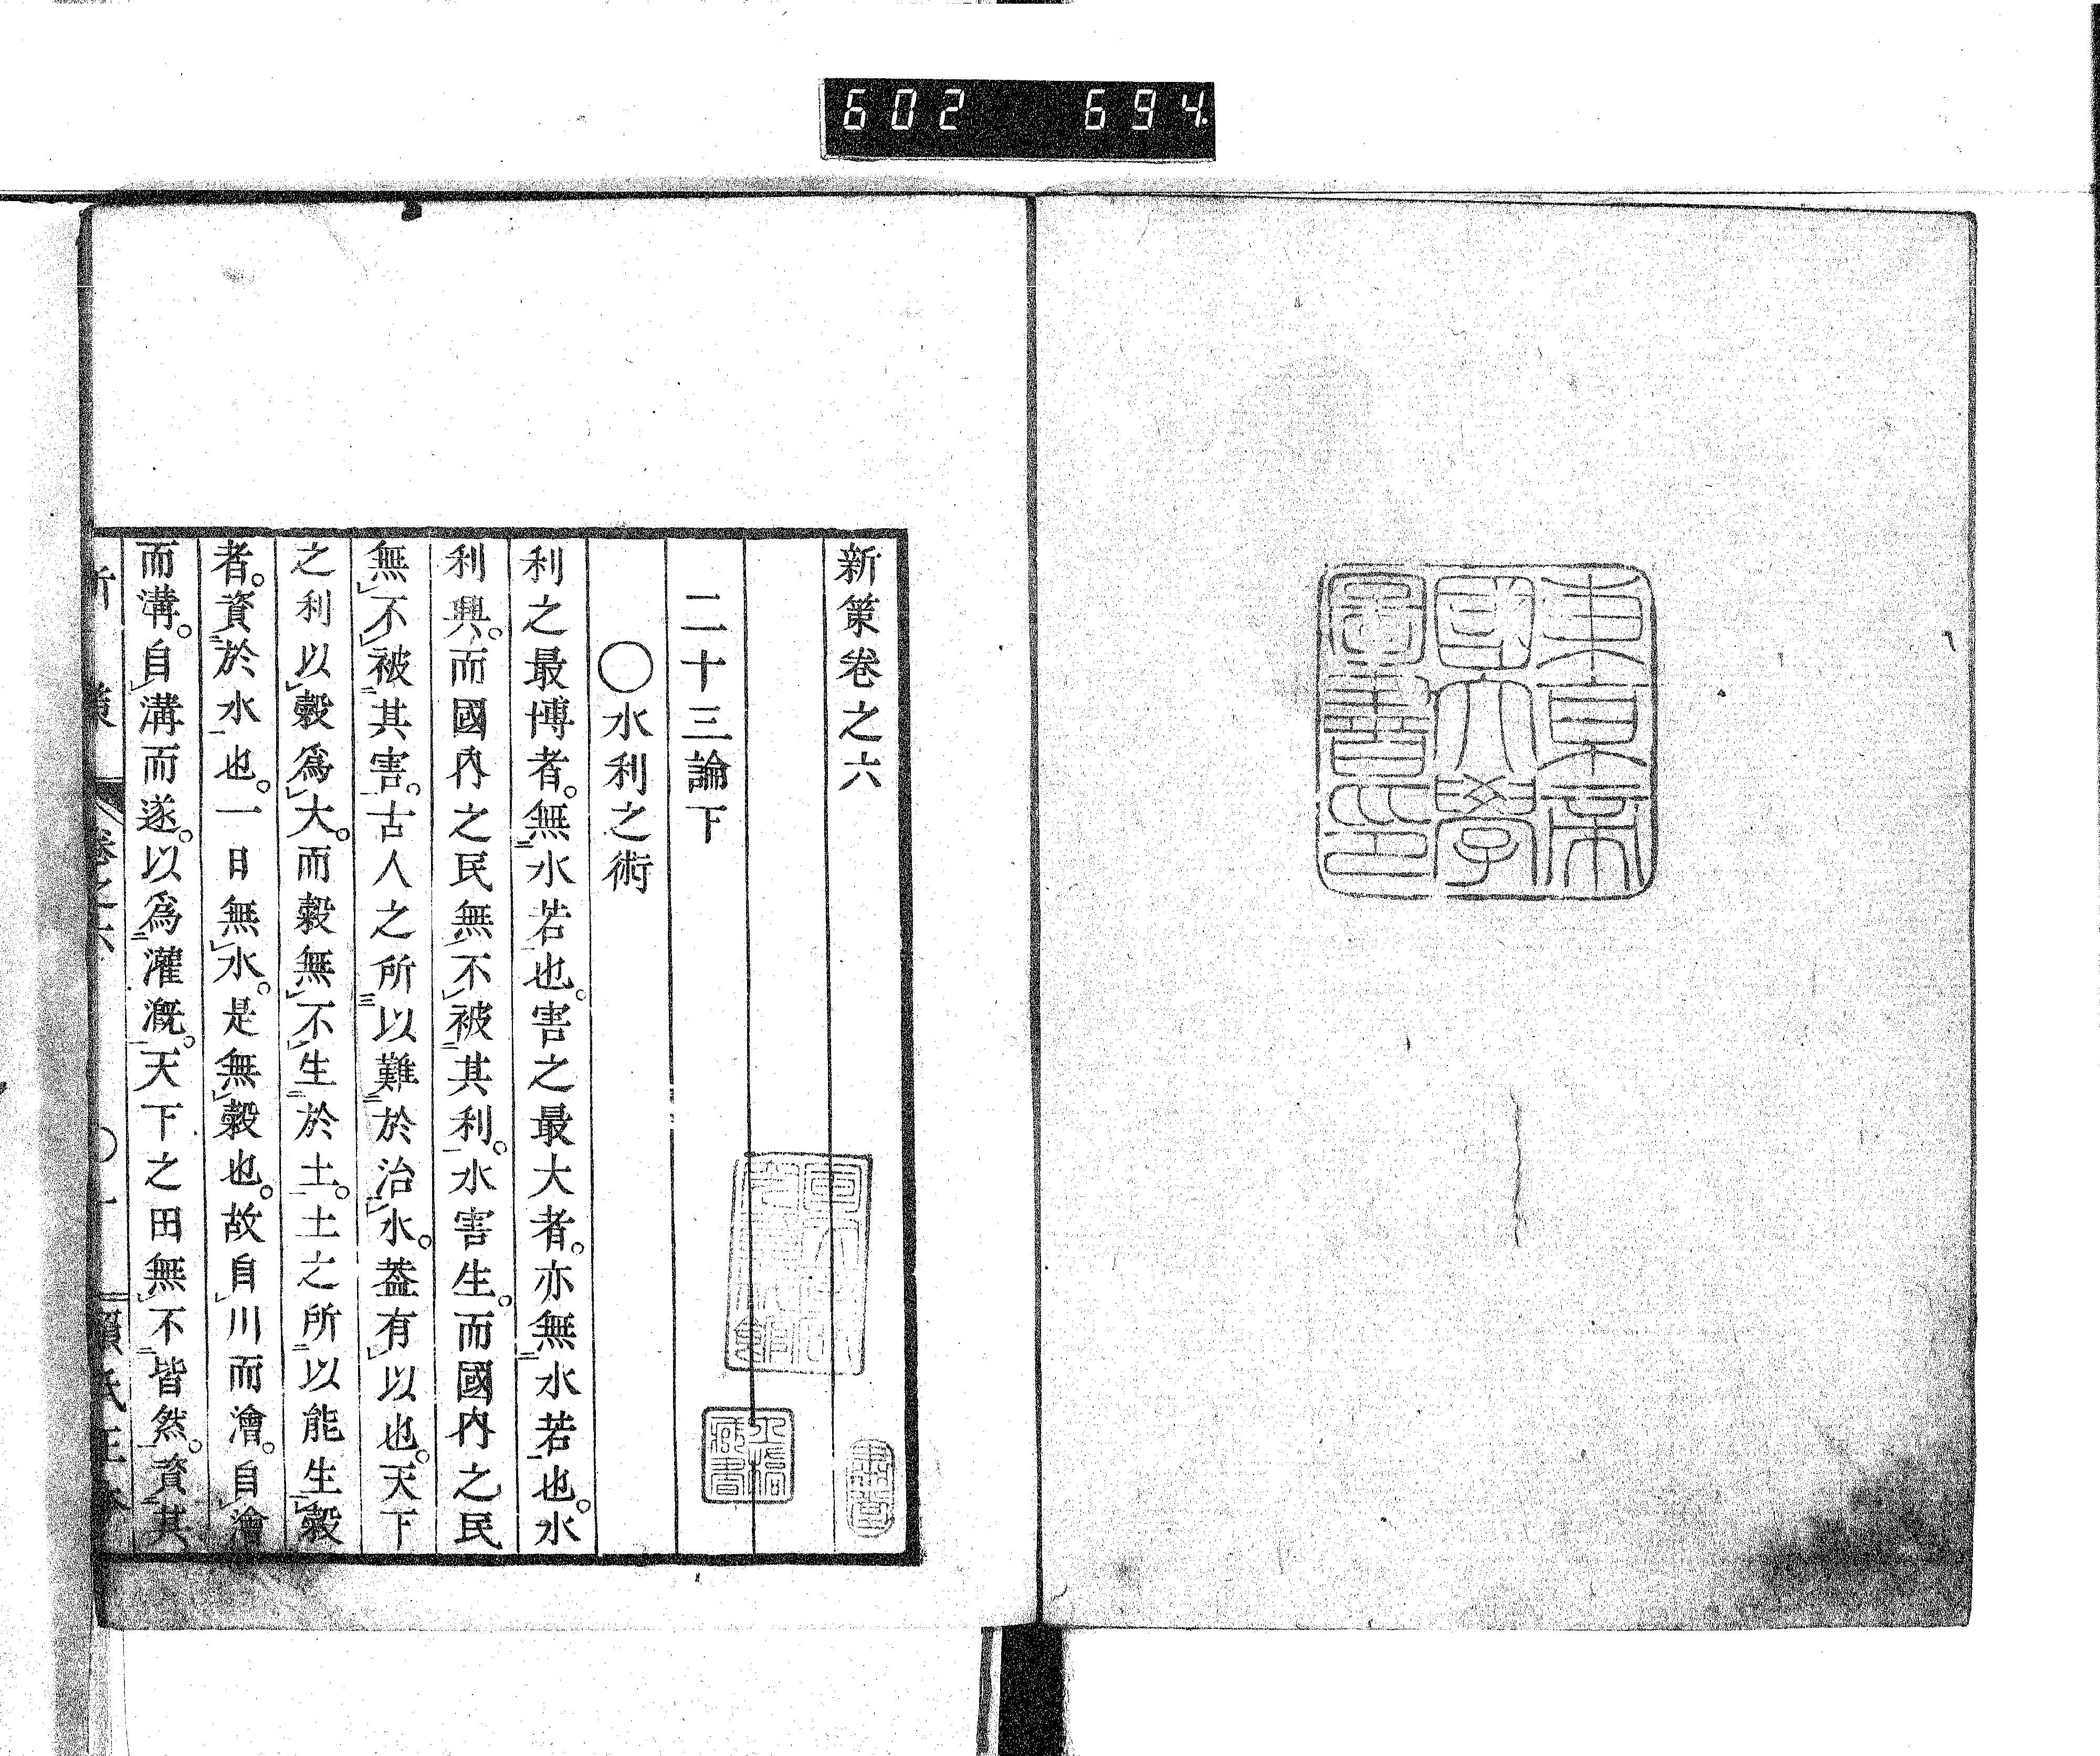 602 694
東京帝
國大學
圖書印
新策卷之六
二十三論下
○水利之術
利之最博者。無水若也。害之最大者。亦無水若也。水
利興。而國內之民無不被其利。水害生。而國內之民
無不被其害。古人之所以難於治水。葢有以也。天下
之利以穀爲大。而穀無不生於土。土之所以能生穀
者。資於水也。一日無水。是無穀也。故自川而澮。自澮
而溝。自溝而遂。以爲灌漑。天下之田無不皆然。資其